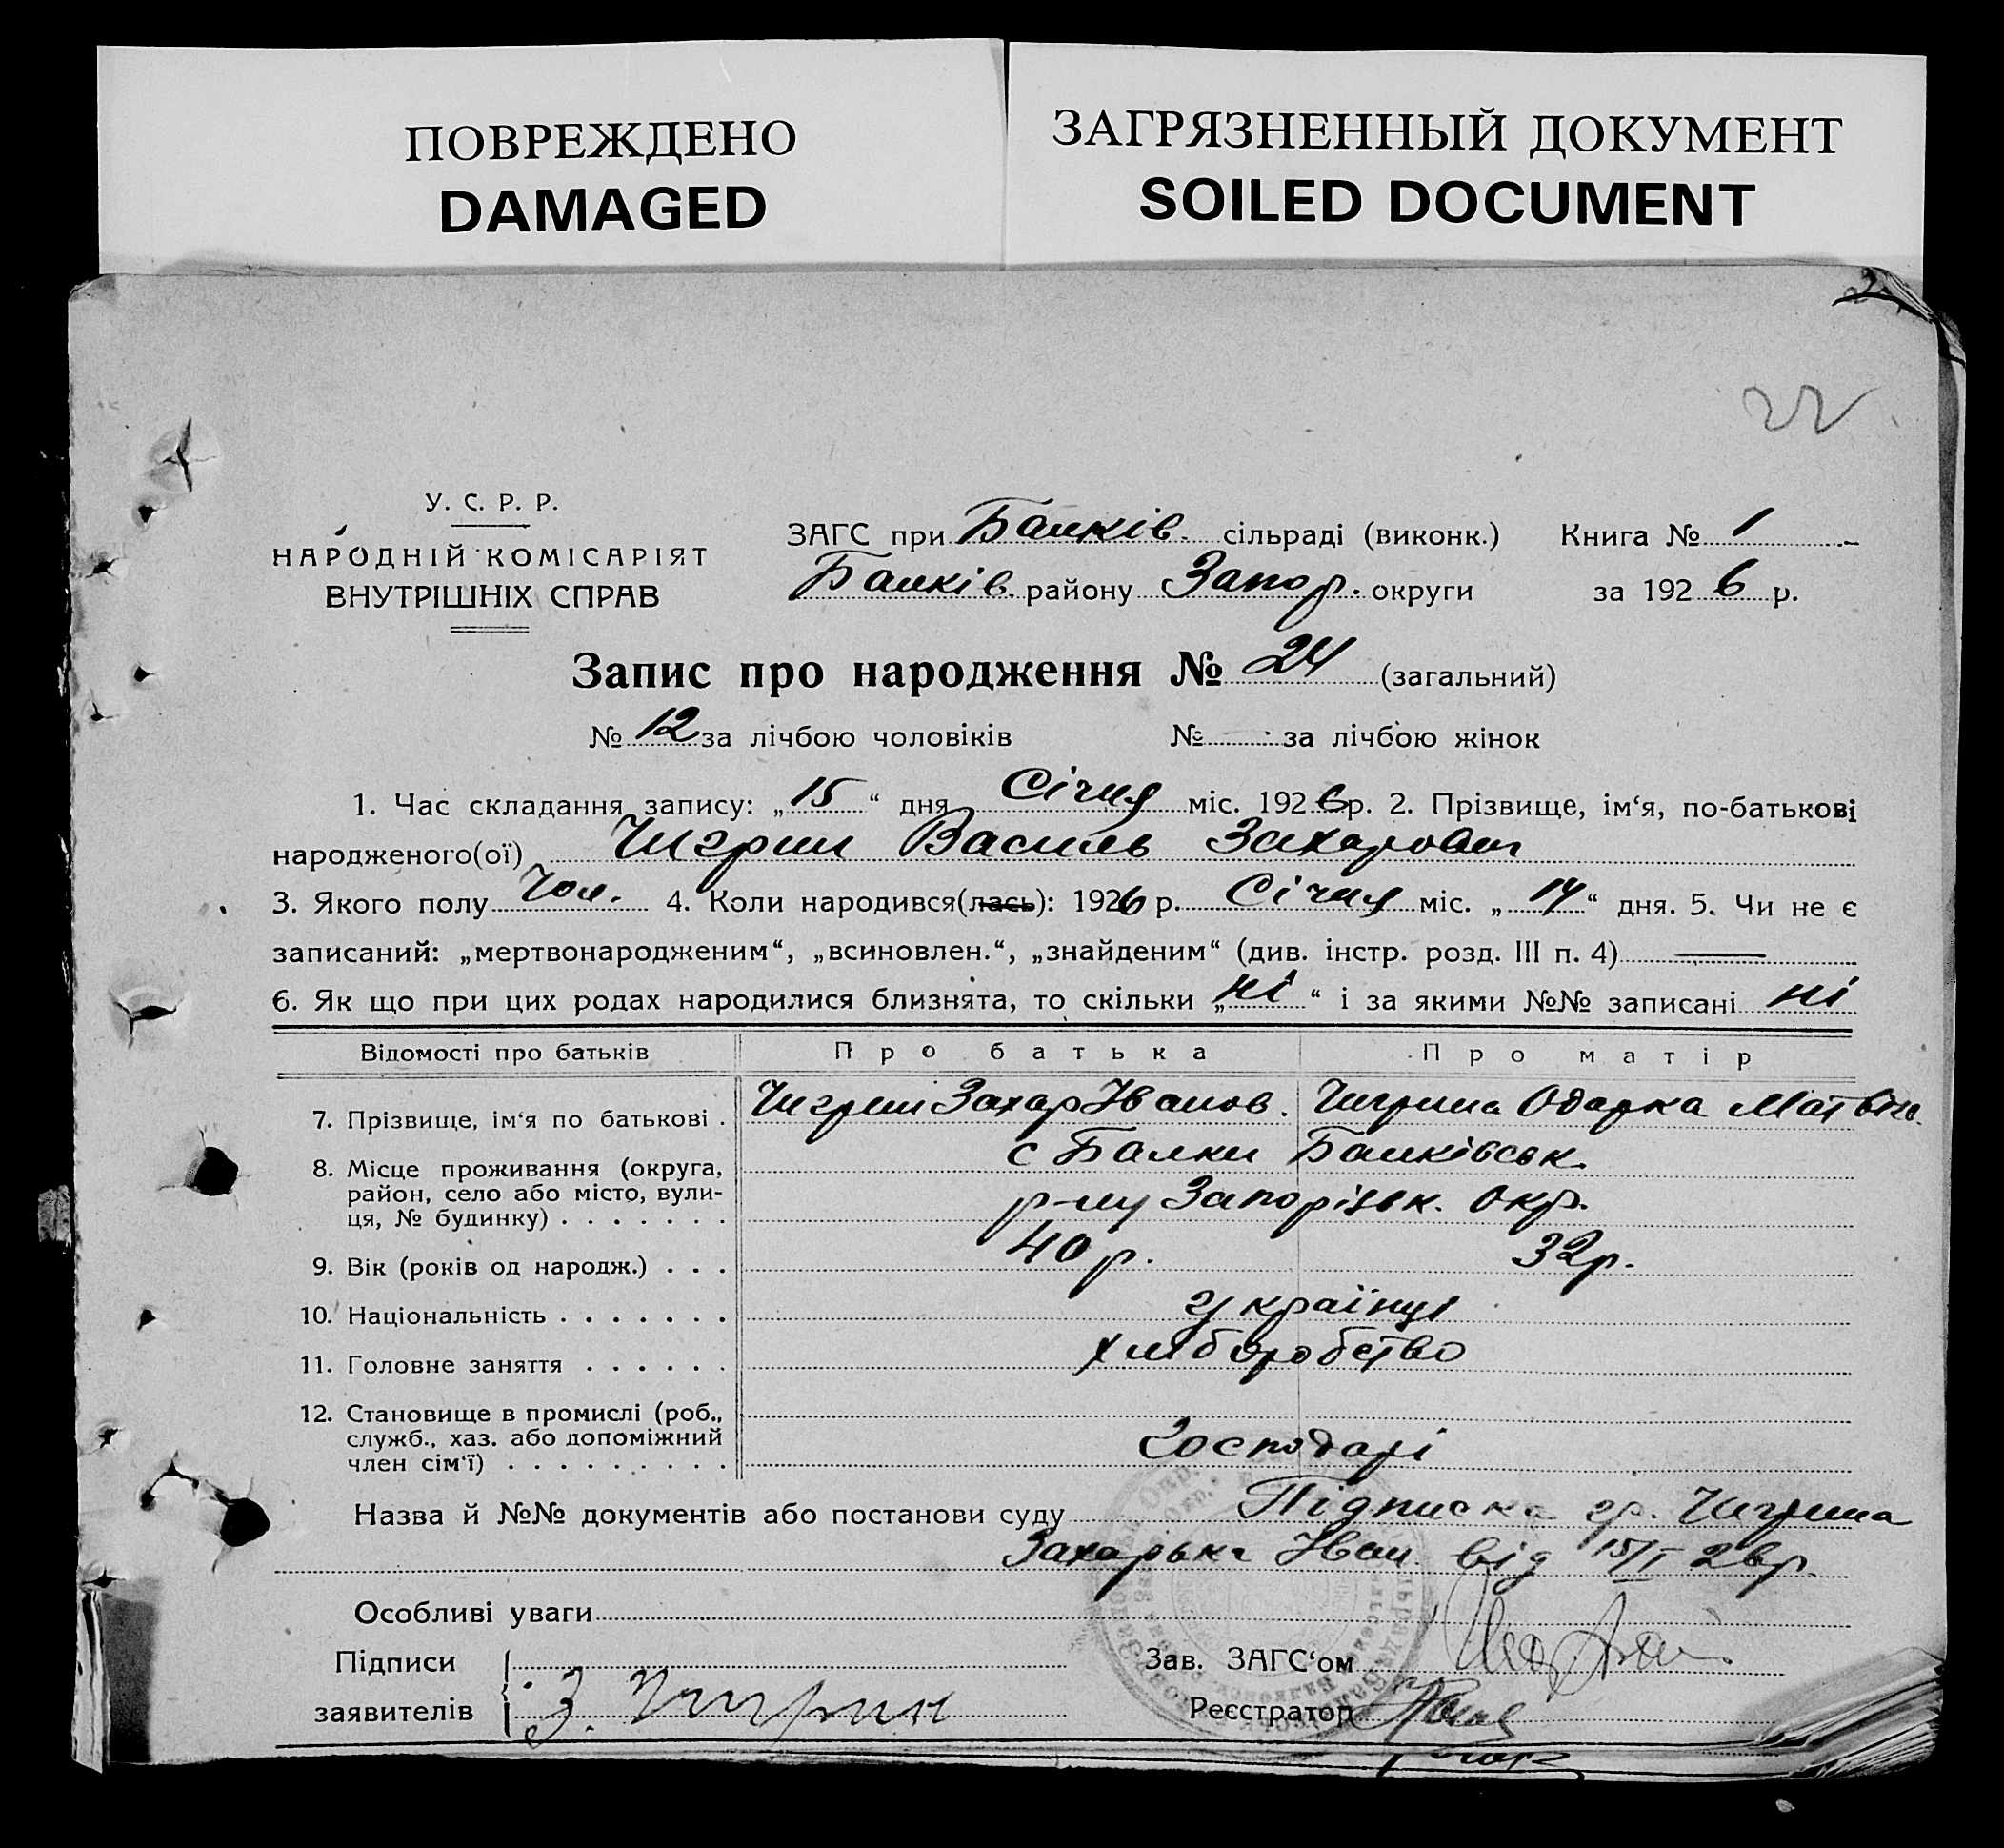 ПОВРЕЖДЕНО
DAMAGED
ЗАГРЯЗНЕННЫЙ ДОКУМЕНТ
SOILED DOCUMENT
22
У. С. Р. Р.
НАРОДНІЙ КОМІСАРІЯТ
ВНУТРІШНІХ СПРАВ
ЗАГС при Балків. сільраді (виконк.) Книга № 1
Балків. району Запор. округи за 1926 р.
Запис про народження № 24 (загальний)
№ 12 за лічбою чоловіків № за лічбою жінок
1. Час складання запису: „15“ дня Січня міс. 1926 р. 2. Прізвище, ім‘я, по-батькові
народженого(ої) Чигрин Василь Захарович
3. Якого полу Чол. 4. Коли народився(лась): 1926 р. Січня міс. „14“ дня. 5. Чи не є
записаний: „мертвонародженим“, „всиновлен.“, „знайденим“ (див. інстр. розд. III п. 4) —
6. Як що при цих родах народилися близнята, то скільки „ні“ і за якими №№ записані ні
Відомості про батьків Про батька Про матір
7. Прізвище, ім‘я по батькові . Чигрин Захар Іванов. Чигрина Одарка Матвіїв.
8. Місце проживання (округа, с Балки Балківськ.
район, село або місто, вули-
ця, № будинку) . . . . . . . р-ну Запорізьк. Окр.
9. Вік (років од народж.) . . . 40 р. 32 р.
10. Національність . . . . . . . українці
11. Головне заняття . . . . . . хліборобство
12. Становище в промислі (роб.,
служб., хаз. або допоміжний
член сім‘ї) . . . . . . . . . Господарі
Назва й №№ документів або постанови суду Підписка гр. Чигрина
Захарька Іван. від 15/I 26 р.
Особливі уваги
Підписи
заявителів З. Чигрин
Зав. ЗАГС‘ом
Реєстратор